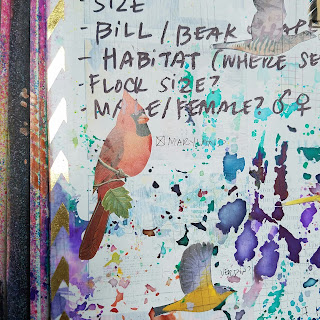 SIZE
- BILL / BEAK SHAPE
- HABITAT (WHERE SE
- FLOCK SIZE?
- MALE/FEMALE? ♂♀